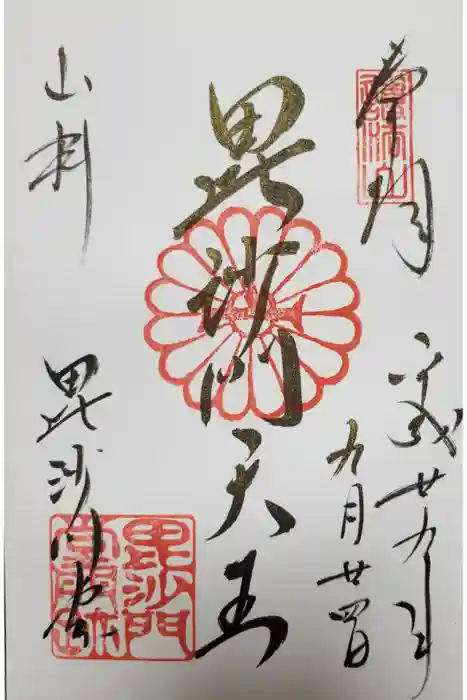 奉拝
護法山
平成廿九年
九月廿四日
毘沙門天王
山科
毘沙門堂
毘沙門